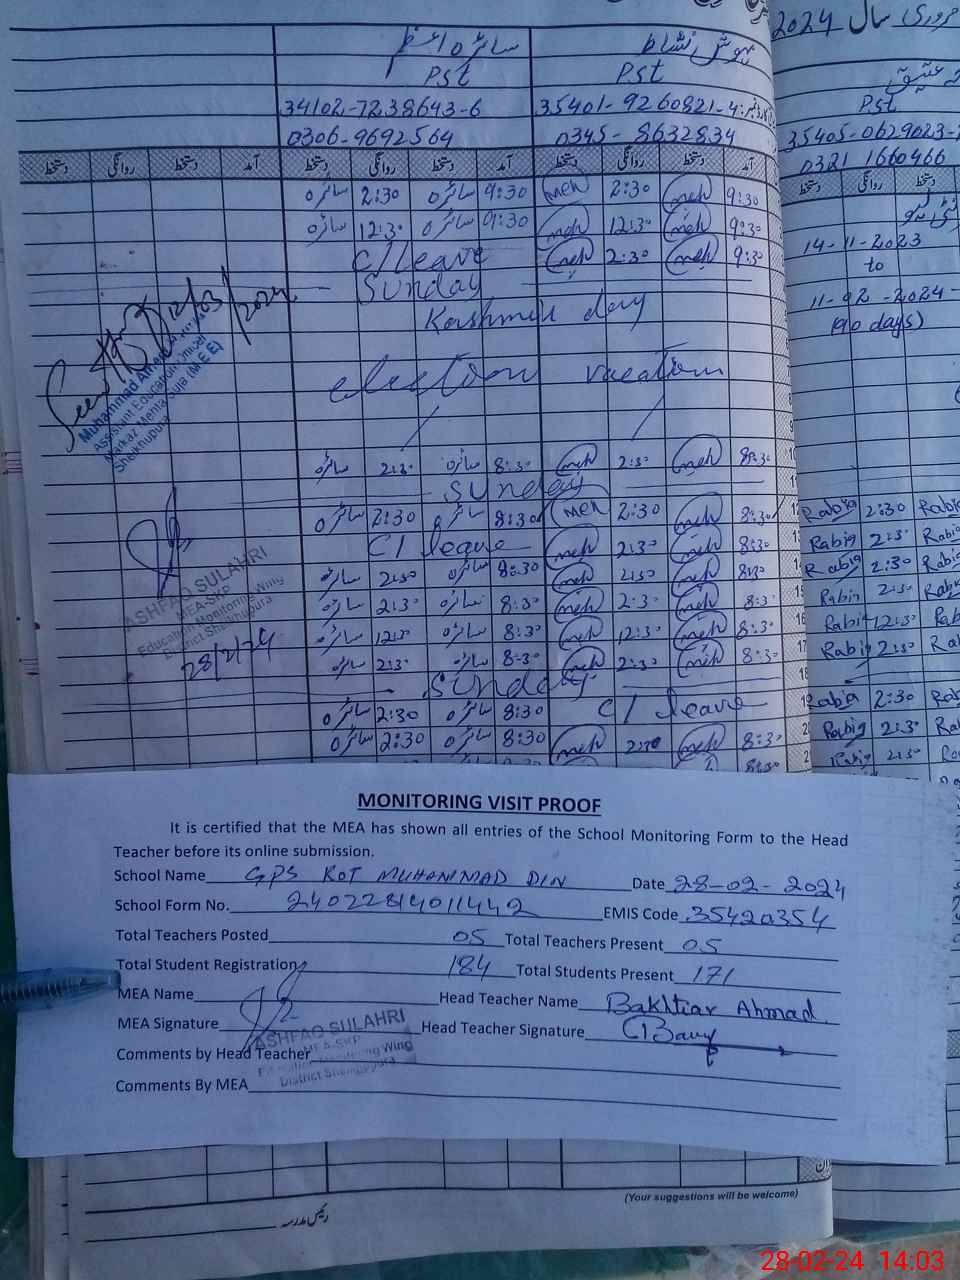 فروری سال 2024
سائرہ اعظم
Pst
Pst
Pst
34102-7238643-6
35401-9260821-4
0306-9692564
0345-8632834
35405-0629023-
0321 1660466
دستخط روانگی دستخط آمد دستخط روانگی دستخط آمد دستخط روانگی دستخط آمد
دستخط روانگی دستخط
سائرہ 2:30 سائرہ 9:30 meh 2:30 meh 9:30
سائرہ 12:30 سائرہ 9:30 meh 12:30 meh 9:30
C/leave meh 2:30 meh 9:30
Sunday
Kashmir day
election vacation
14-11-2023
to
11-02-2024
(90 days)
Seen
12/03/2024
Assistant Education Officer
Markaz Menta Suja (M-E-E)
Sheikhupura
سائرہ 2:30 سائرہ 8:30 meh 2:30 meh 8:30
Sunday
سائرہ 2:30 سائرہ 8:30 meh 2:30 meh 8:30 Rabia 2:30 Rabia
C/leave meh 2:30 meh 8:30 Rabia 2:30 Rabia
سائرہ 2:30 سائرہ 8:30 meh 2:30 meh 8:30 Rabia 2:30 Rabia
سائرہ 2:30 سائرہ 8:30 meh 2:30 meh 8:30 Rabia 2:30
سائرہ 12:30 سائرہ 8:30 meh 12:30 meh 8:30 Rabia 12:30
سائرہ 2:30 سائرہ 8:30 meh 2:30 meh 8:30 Rabia 2:30
Sunday
سائرہ 2:30 سائرہ 8:30 C/leave Rabia 2:30
سائرہ 2:30 سائرہ 8:30 meh 2:30 meh 8:30 Rabia 2:30
Rabia 2:30
ASHFAQ SULAHRI
MEA-SKP
Education Monitoring Wing
District Sheikhupura
28/2/24
MONITORING VISIT PROOF
It is certified that the MEA has shown all entries of the School Monitoring Form to the Head
Teacher before its online submission.
School Name GPS KOT MUHAMMAD DIN Date 28-02-2024
School Form No. 24022814011442 EMIS Code 35420354
Total Teachers Posted 05 Total Teachers Present 05
Total Student Registration 184 Total Students Present 171
MEA Name Head Teacher Name Bakhtiar Ahmad
MEA Signature Head Teacher Signature
ASHFAQ SULAHRI
MEA-SKP
Education Monitoring Wing
District Sheikhupura
Comments by Head Teacher
Comments By MEA
(Your suggestions will be welcome)
رئیس مدرسہ
28-02-24 14:03